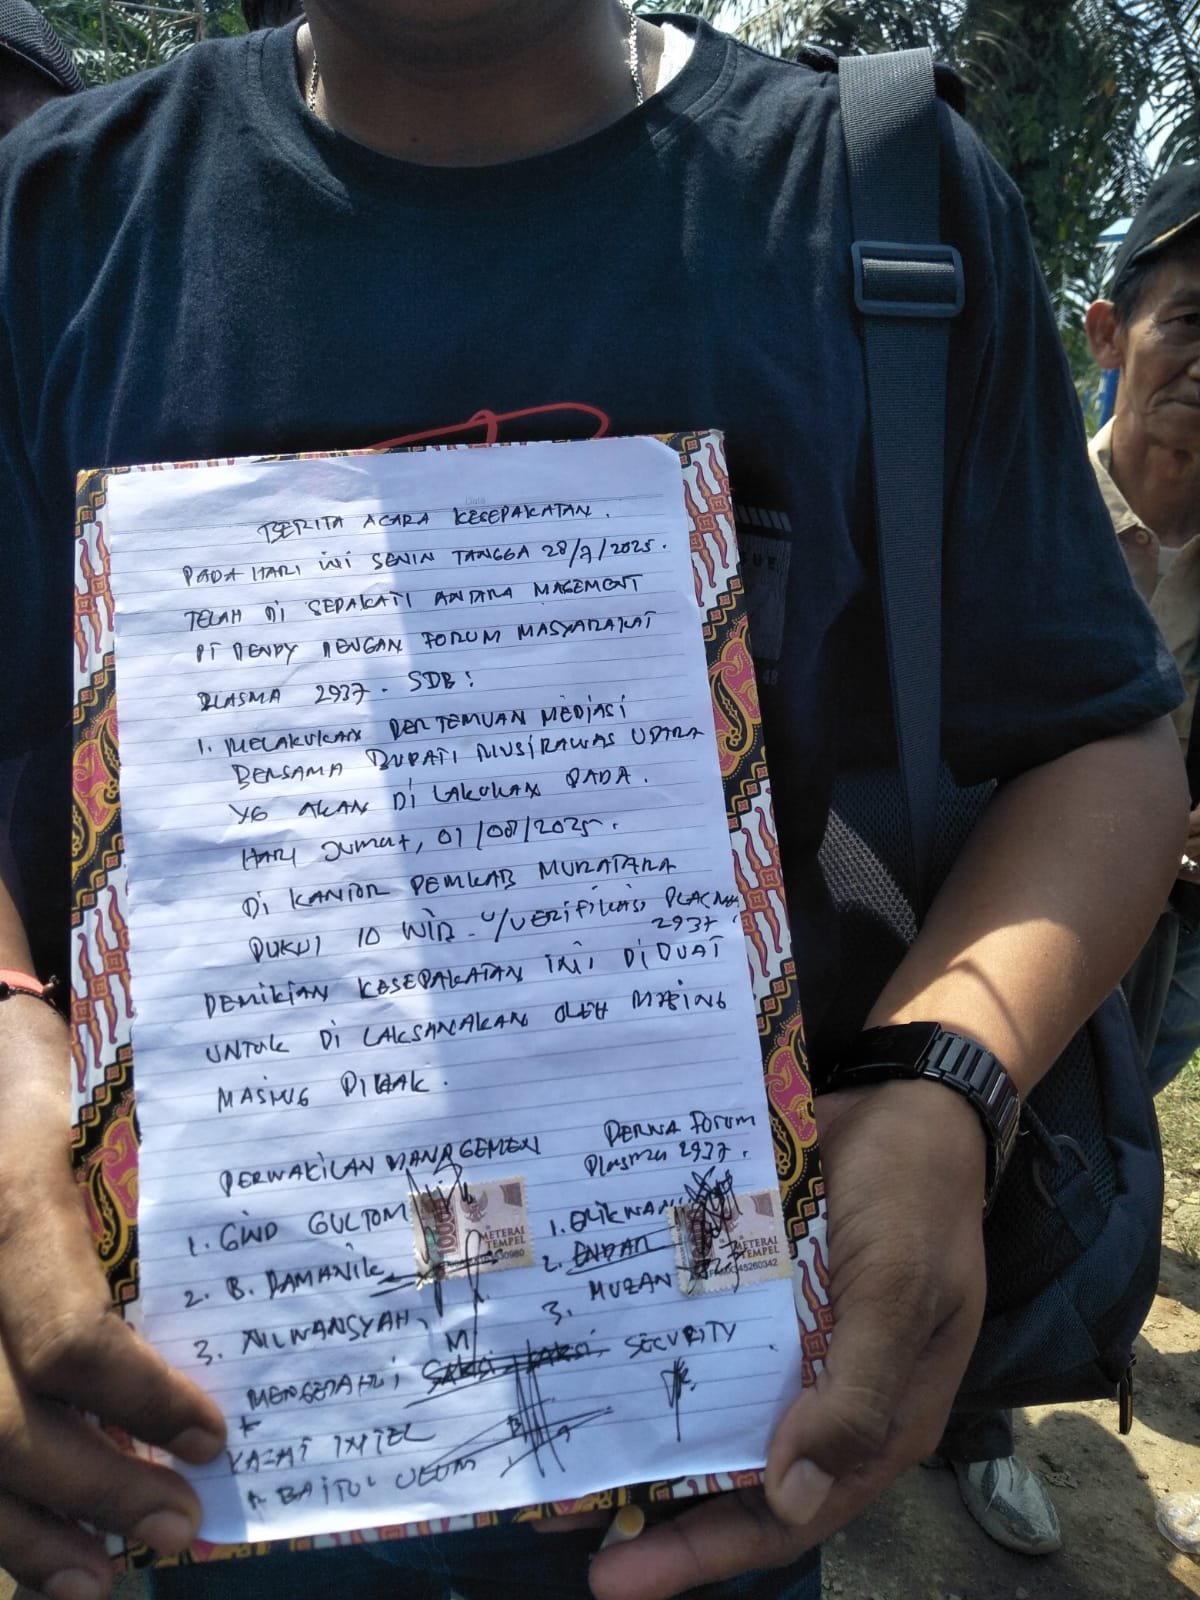 Date
BERITA ACARA KESEPAKATAN.
PADA HARI INI SENIN TANGGA 28/7/2025.
TELAH DI SEPAKATI ANTARA MAGEMENT
PT DENDY DENGAN FORUM MASYARAKAT
PLASMA 2937. SDB:
1. MELAKUKAN PERTEMUAN MEDIASI
BERSAMA BUPATI MUSIRAWAS UTARA
YG AKAN DI LAKUKAN PADA.
HARI Jumat, 01/08/2025.
DI KANTOR PEMKAB MURATARA
PUKUL 10 WIB. U/VERIFIKASI PLASMA
2937.
DEMIKIAN KESEPAKATAN INI DI BUAT
UNTUK DI LAKSANAKAN OLEH MASING
MASING PIHAK.
PERWAKILAN MANAGEMEN
PERWA Forum
Plasma 2937.
1. GINO GULTOM
2. B. DAMANIK
3. ALWANSYAH
1. ERIKWAN
2. ENDAR
MUZAN
3.
METERAI
TEMPEL
METERAI
TEMPEL
45260342
MENGETAHUI SAKSI SECURITY
INTEL
BAITUL ULUM
SUE
48